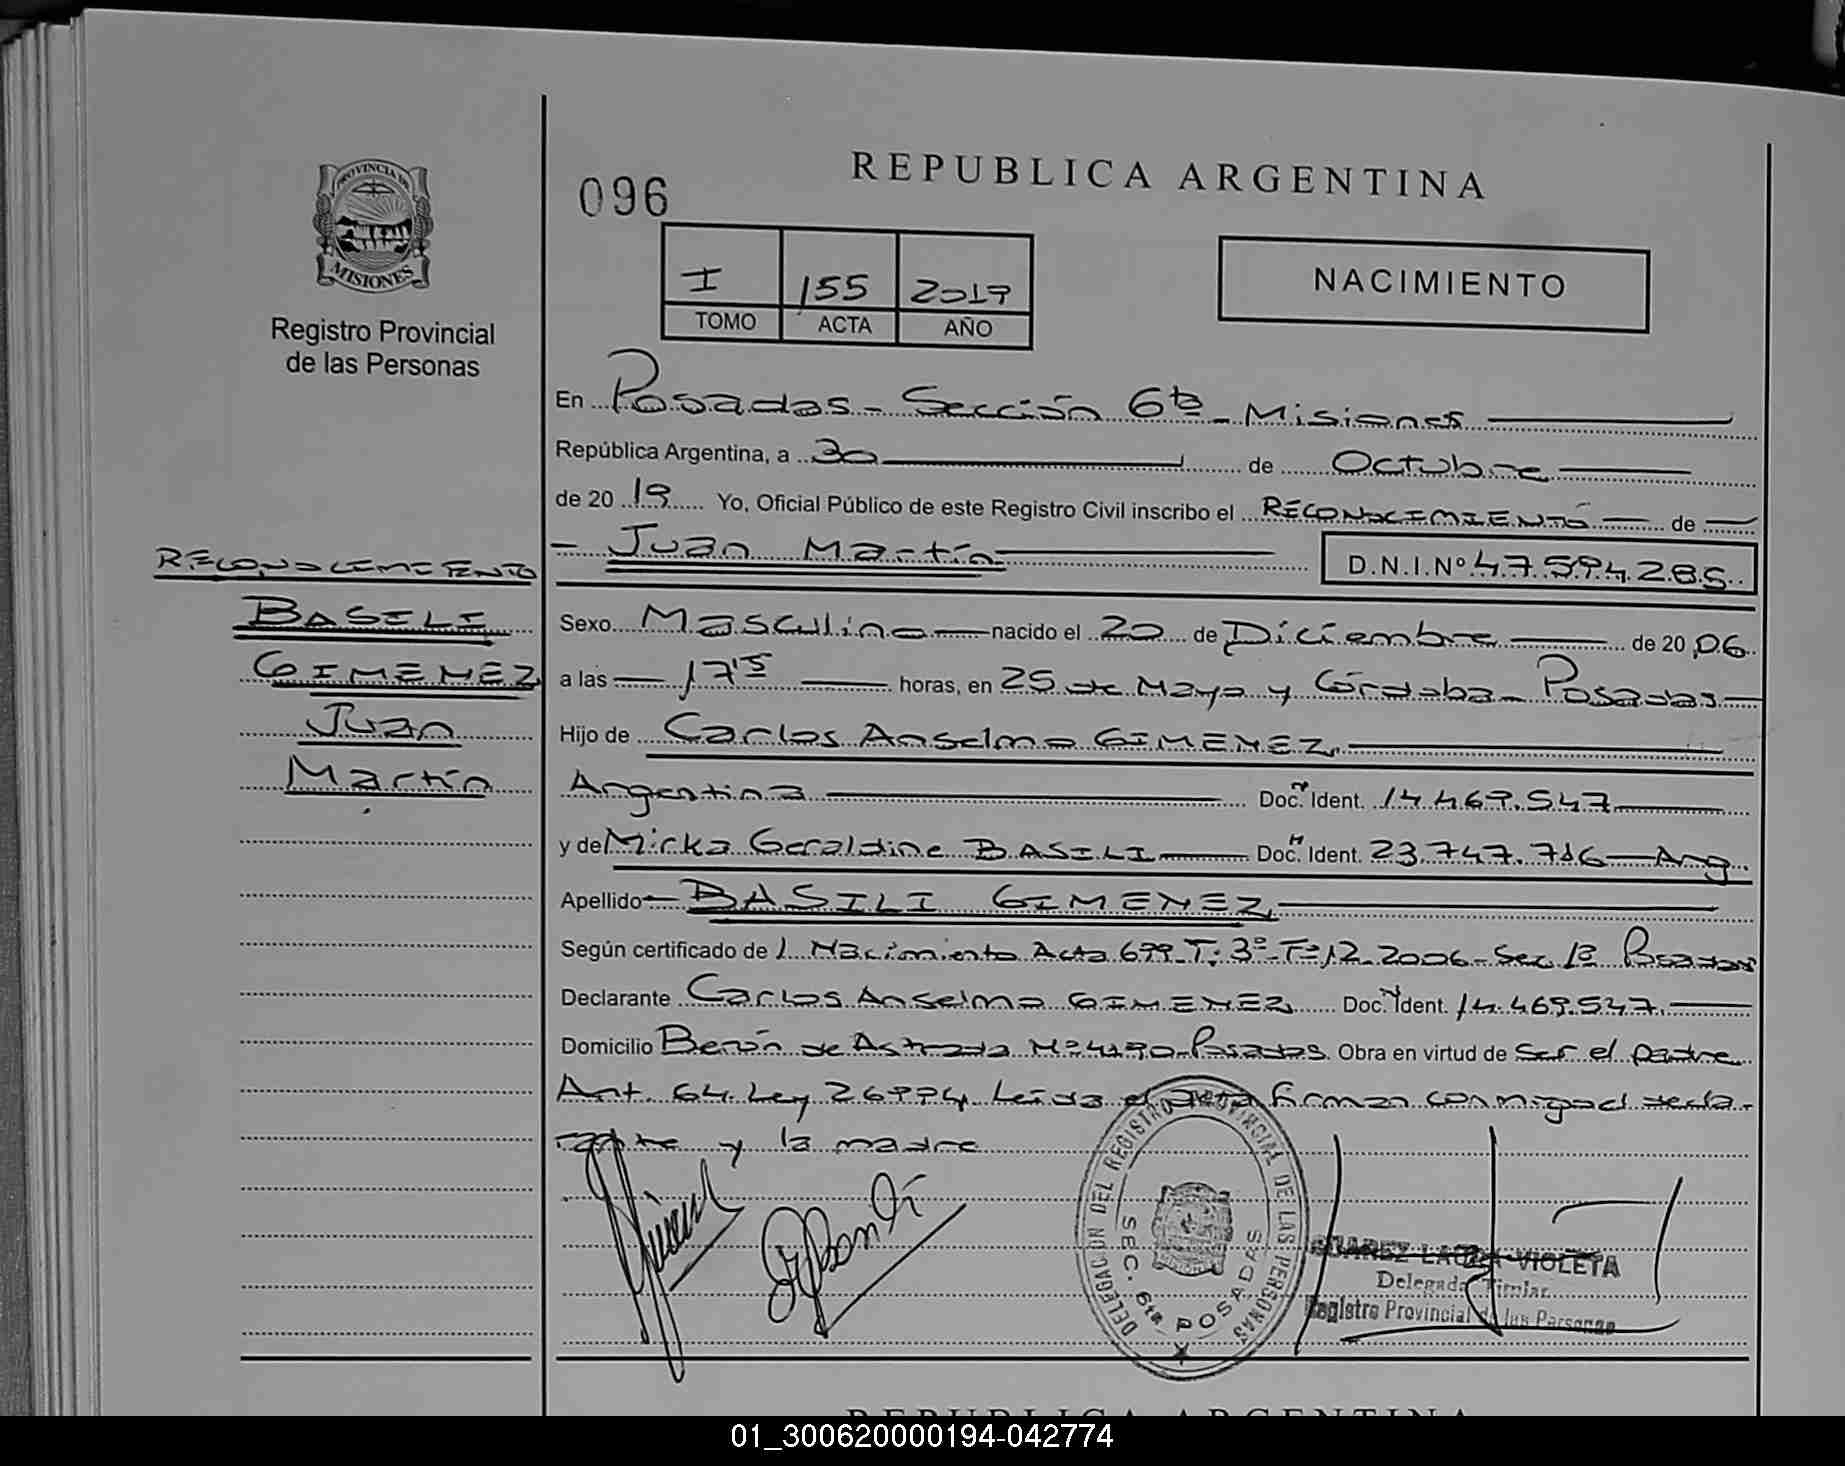 PROVINCIA DE
MISIONES
Registro Provincial
de las Personas
RECONOCIMIENTO
BASILI
GIMENEZ
Juan
Martín
096
REPUBLICA ARGENTINA
I 155 2019
TOMO ACTA AÑO
NACIMIENTO
En Posadas - Sección 6ta - Misiones
República Argentina, a 30 de Octubre
de 20 19 Yo, Oficial Público de este Registro Civil inscribo el RECONOCIMIENTO de
Juan Martín D.N.I.Nº 47.594.285
Sexo Masculino nacido el 20 de Diciembre de 20 06
a las 17 15 horas, en 25 de Mayo y Córdoba - Posadas
Hijo de Carlos Anselmo GIMENEZ
Argentina Doc. Ident. 14.469.547
y de Mirka Geraldine BASILI Doc. Ident. 23.747.716 - Arg.
Apellido BASILI GIMENEZ
Según certificado de Nacimiento Acta 699 - T: 3º - Fº 12 - 2006 - Sec 1ª Posadas
Declarante Carlos Anselmo GIMENEZ Doc. Ident. 14.469.547
Domicilio Berón de Astrada Nº 4190 - Posadas Obra en virtud de ser el padre
Art. 64 Ley 26994. Leída el acta firman conmigo el decla-
rante y la madre
DELEGACION DEL REGISTRO PROVINCIAL DE LAS PERSONAS
SEC. 6ta POSADAS
SUAREZ LAURA VIOLETA
Delegada Titular
Registro Provincial de las Personas
REPUBLICA ARGENTINA
01_300620000194-042774